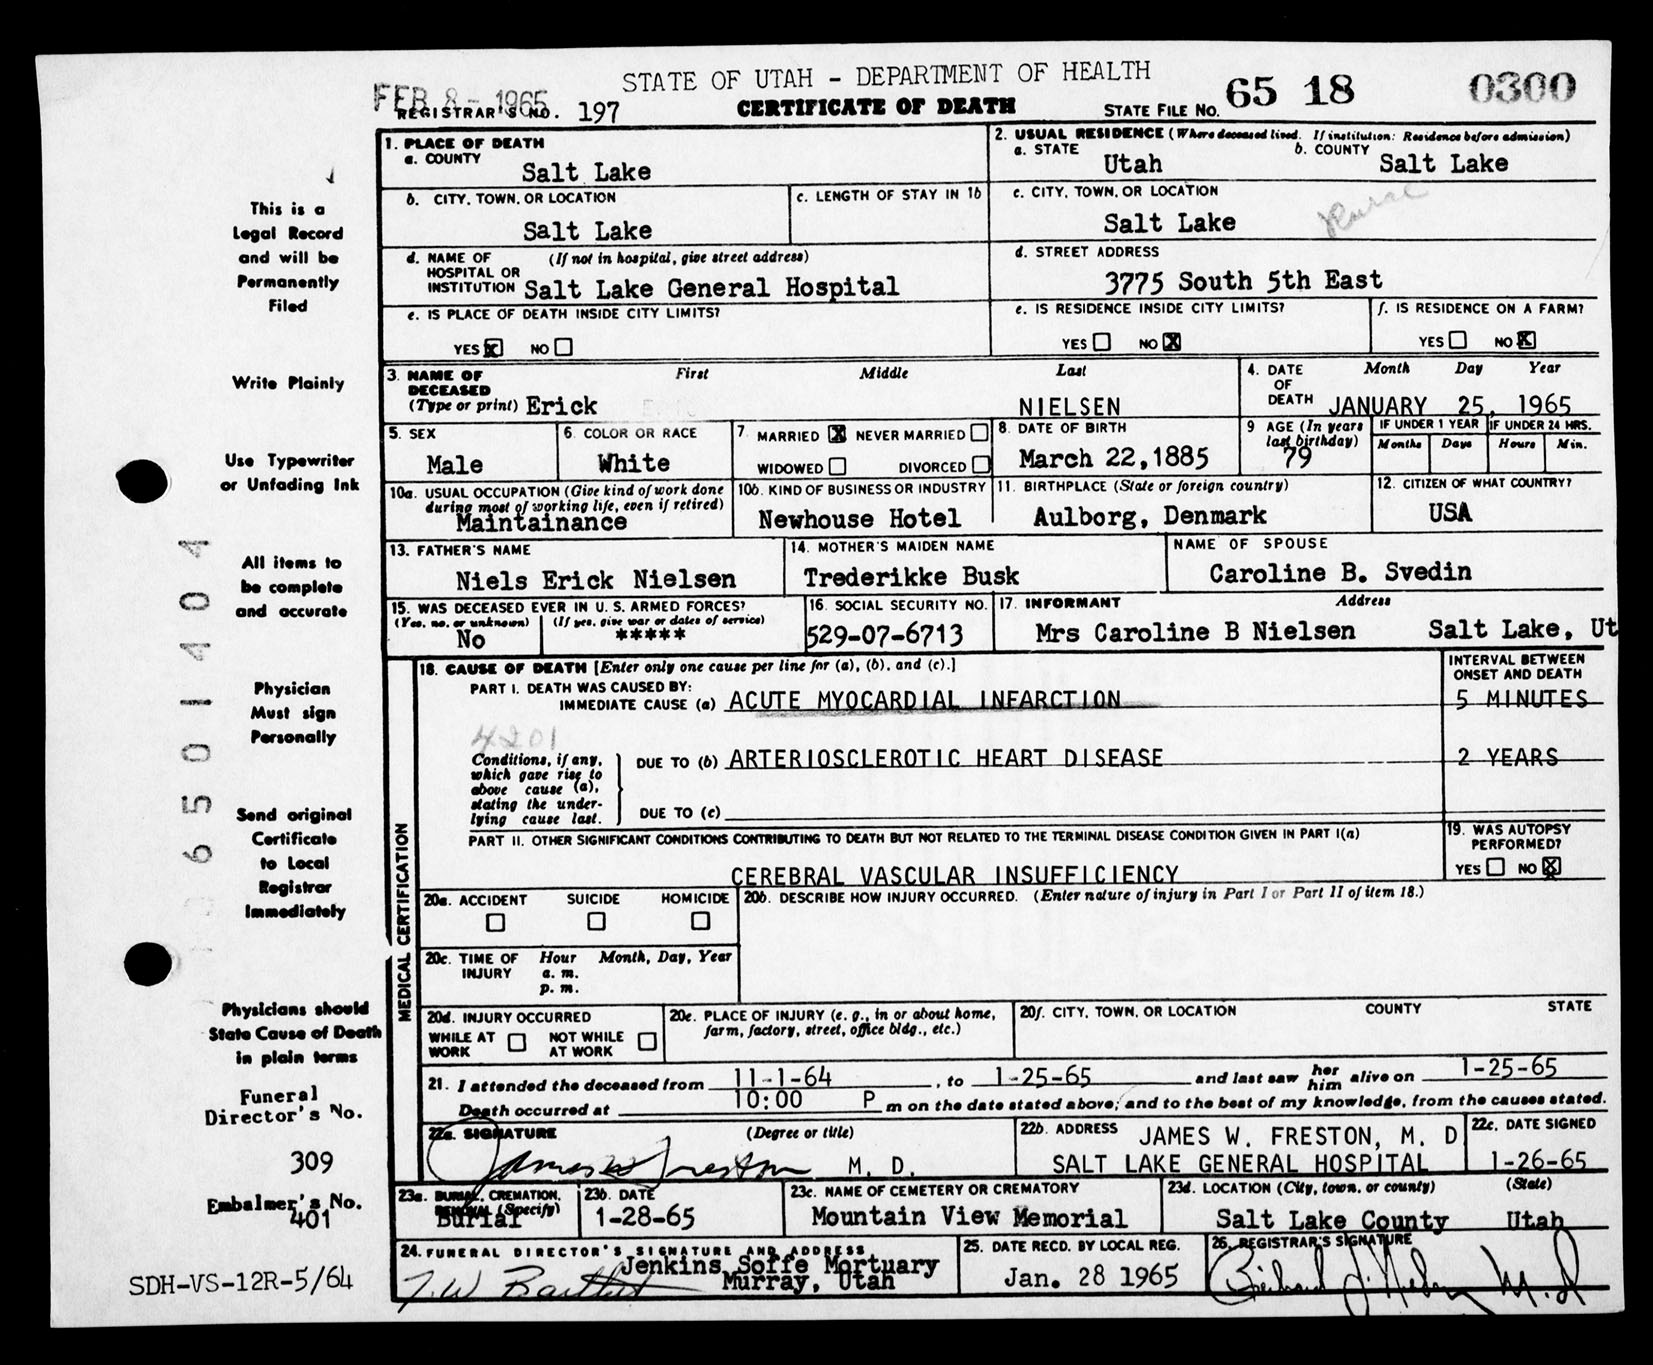 STATE OF UTAH - DEPARTMENT OF HEALTH
FEB 8 - 1965
REGISTRAR'S NO. 197 CERTIFICATE OF DEATH STATE FILE NO. 65 18 0300
1. PLACE OF DEATH
a. COUNTY
Salt Lake
2. USUAL RESIDENCE (Where deceased lived. If institution: Residence before admission)
a. STATE Utah b. COUNTY Salt Lake
b. CITY, TOWN, OR LOCATION
Salt Lake
c. LENGTH OF STAY IN 1b
c. CITY, TOWN, OR LOCATION
Salt Lake Rural
d. NAME OF (If not in hospital, give street address)
HOSPITAL OR
INSTITUTION Salt Lake General Hospital
d. STREET ADDRESS
3775 South 5th East
e. IS PLACE OF DEATH INSIDE CITY LIMITS?
YES X NO
e. IS RESIDENCE INSIDE CITY LIMITS?
YES NO X
f. IS RESIDENCE ON A FARM?
YES NO X
3. NAME OF First Middle Last
DECEASED
(Type or print) Erick NIELSEN
4. DATE Month Day Year
OF
DEATH JANUARY 25, 1965
5. SEX
Male
6. COLOR OR RACE
White
7. MARRIED X NEVER MARRIED
WIDOWED DIVORCED
8. DATE OF BIRTH
March 22,1885
9 AGE (In years
last birthday)
79
IF UNDER 1 YEAR
Months Days
IF UNDER 24 HRS.
Hours Min.
10a. USUAL OCCUPATION (Give kind of work done
during most of working life, even if retired)
Maintainance
10b. KIND OF BUSINESS OR INDUSTRY
Newhouse Hotel
11. BIRTHPLACE (State or foreign country)
Aulborg, Denmark
12. CITIZEN OF WHAT COUNTRY?
USA
13. FATHER'S NAME
Niels Erick Nielsen
14. MOTHER'S MAIDEN NAME
Trederikke Busk
NAME OF SPOUSE
Caroline B. Svedin
15. WAS DECEASED EVER IN U. S. ARMED FORCES?
(Yes, no, or unknown) (If yes, give war or dates of service)
No *****
16. SOCIAL SECURITY NO.
529-07-6713
17. INFORMANT Address
Mrs Caroline B Nielsen Salt Lake, Ut
MEDICAL CERTIFICATION
18. CAUSE OF DEATH [Enter only one cause per line for (a), (b), and (c).]
INTERVAL BETWEEN
ONSET AND DEATH
PART I. DEATH WAS CAUSED BY:
IMMEDIATE CAUSE (a) ACUTE MYOCARDIAL INFARCTION 5 MINUTES
4201
Conditions, if any,
which gave rise to
above cause (a),
stating the under-
lying cause last.
DUE TO (b) ARTERIOSCLEROTIC HEART DISEASE 2 YEARS
DUE TO (c)
PART II. OTHER SIGNIFICANT CONDITIONS CONTRIBUTING TO DEATH BUT NOT RELATED TO THE TERMINAL DISEASE CONDITION GIVEN IN PART I(a)
CEREBRAL VASCULAR INSUFFICIENCY
19. WAS AUTOPSY
PERFORMED?
YES NO X
20a. ACCIDENT SUICIDE HOMICIDE
20b. DESCRIBE HOW INJURY OCCURRED. (Enter nature of injury in Part I or Part II of item 18.)
20c. TIME OF Hour Month, Day, Year
INJURY a. m.
p. m.
20d. INJURY OCCURRED
WHILE AT NOT WHILE
WORK AT WORK
20e. PLACE OF INJURY (e. g., in or about home,
farm, factory, street, office bldg., etc.)
20f. CITY, TOWN, OR LOCATION COUNTY STATE
21. I attended the deceased from 11-1-64, to 1-25-65 and last saw her him alive on 1-25-65
Death occurred at 10:00 P m on the date stated above; and to the best of my knowledge, from the causes stated.
22a. SIGNATURE (Degree or title)
James W Freston M. D.
22b. ADDRESS JAMES W. FRESTON, M. D
SALT LAKE GENERAL HOSPITAL
22c. DATE SIGNED
1-26-65
23a. BURIAL, CREMATION,
REMOVAL (Specify)
Burial
23b. DATE
1-28-65
23c. NAME OF CEMETERY OR CREMATORY
Mountain View Memorial
23d. LOCATION (City, town, or county) (State)
Salt Lake County Utah
24. FUNERAL DIRECTOR'S SIGNATURE AND ADDRESS
Jenkins Soffe Mortuary
Murray, Utah
25. DATE RECD. BY LOCAL REG.
Jan. 28 1965
26. REGISTRAR'S SIGNATURE
This is a
Legal Record
and will be
Permanently
Filed
Write Plainly
Use Typewriter
or Unfading Ink
All items to
be complete
and accurate
Physician
Must sign
Personally
Send original
Certificate
to Local
Registrar
Immediately
Physicians should
State Cause of Death
in plain terms
Funeral
Director's No.
309
Embalmer's No.
401
SDH-VS-12R-5/64
6501404